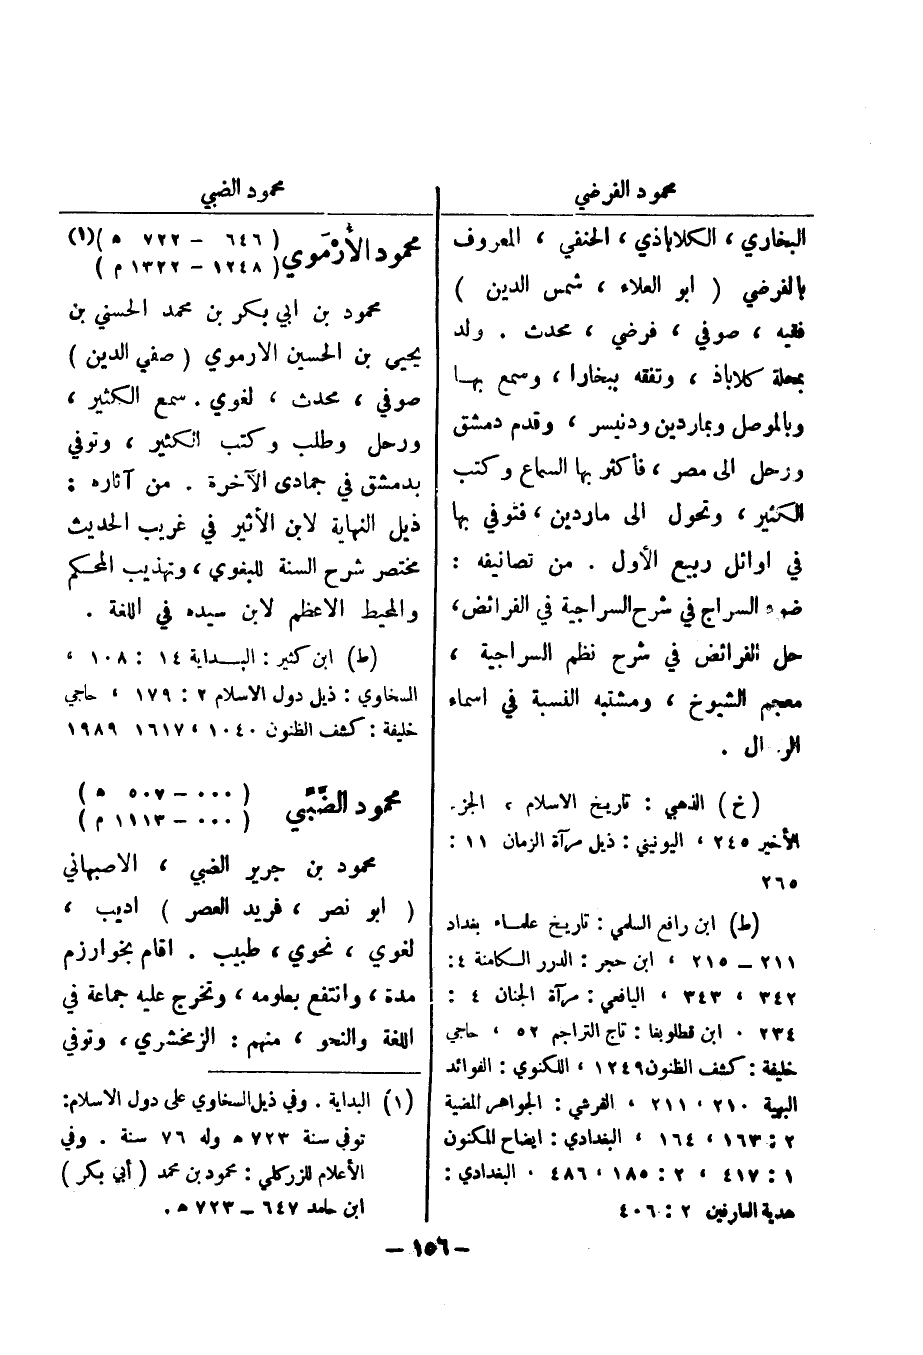 محمود الفرضي
البخاري ، الكلاباذي ، الحنفي ، المعروف
بالفرضي ( ابو العلاء ، شمس الدين )
فقيه ، صوفي ، فرضي ، محدث . ولد
بمحلة كلاباذ ، وتفقه ببخارا ، وسمع بها
وبالموصل وبماردين ودنيسر ، وقدم دمشق
ورحل الى مصر ، فأكثر بها السماع وكتب
الكثير ، وتحول الى ماردين ، فتوفي بها
في اوائل ربيع الأول . من تصانيفه :
السراج في شرح السراجية في الفرائض ،
حل الفرائض في شرح نظم السراجية ،
معجم الشيوخ ، ومشتبه النسبة في اسماء
.
(خ) الذهبي : تاريخ الاسلام ، الجزء
الأخير ٢٤٥ ، اليونيني : ذيل مرآة الزمان ١١ :
٢٦٥
(ط) ابن رافع السلمي : تاريخ علماء بغداد
٢١١ – ٢١٥ ، ابن حجر : الدرر الكامنة ٤ :
٣٤٢ ، ٣٤٣ ، اليافعي : مرآة الجنان ٤ :
٢٣٤ . ابن قطلوبغا : تاج التراجم ٥٢ ، حاجي
خليفة : كشف الظنون ١٢٤٩ ، اللكنوي : الفوائد
البهية ٢١٠ ، ٢١١ ، القرشي : الجواهر المضية
٢ : ١٦٣ ، ١٦٤ ، البغدادي : ايضاح المكنون
١ : ٤١٧ ، ٢ : ١٨٥ ، ٤٨٦ . البغدادي :
هدية العارفين ٢ : ٤٠٦
محمود الضبي
محمود الأُرْمَوي ( ٦٤٦ – ٧٢٢ ه )(١)
( ١٢٤٨ – ١٣٢٢ م )
محمود بن ابي بكر بن محمد الحسني بن
يحيى بن الحسين الارموي ( صفي الدين )
صوفي ، محدث ، لغوي . سمع الكثير ،
ورحل وطلب وكتب الكثير ، وتوفي
بدمشق في جمادى الآخرة . من آثاره :
ذيل النهاية لابن الأثير في غريب الحديث
مختصر شرح السنة للبغوي ، وتهذيب المحكم
والمحيط الاعظم لابن سيده في اللغة .
(ط) ابن كثير : البداية ١٤ : ١٠٨ ،
السخاوي : ذيل دول الاسلام ٢ : ١٧٩ ، حاجي
خليفة : كشف الظنون ١٠٤٠ ، ١٦١٧ ١٩٨٩
محمود الضَّبِّي ( ٠٠٠ – ٥٠٧ ه )
( ٠٠٠ – ١١١٣ م )
محمود بن جرير الضبي ، الاصبهاني
( ابو نصر ، فريد العصر ) اديب ،
لغوي ، نحوي ، طبيب . اقام بخوارزم
مدة ، وانتفع بعلومه ، وتخرج عليه جماعة في
اللغة والنحو ، منهم : الزمخشري ، وتوفي
(١) البداية . وفي ذيل السخاوي على دول الاسلام :
توفي سنة ٧٢٣ ه وله ٧٦ سنة . وفي
الأعلام للزركلي : محمود بن محمد ( أبي بكر )
ابن حامد ٦٤٧ – ٧٢٣ ه .
– ١٥٦ –